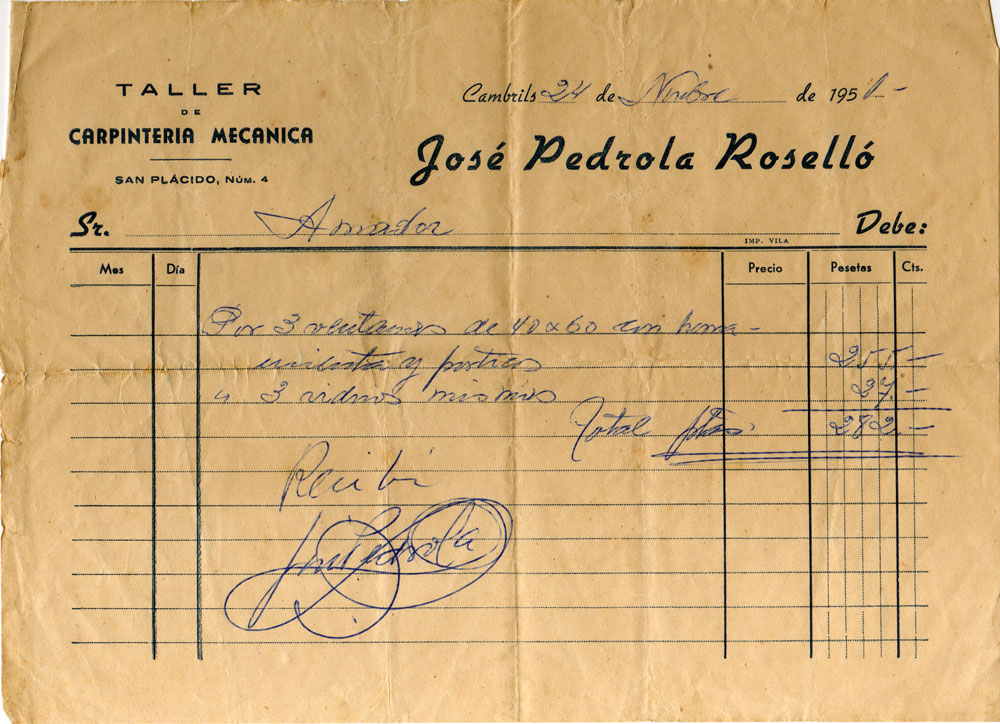 TALLER
DE
CARPINTERIA MECANICA
SAN PLÁCIDO, NÚM. 4
Cambrils 24 de Nvbre de 1951-
José Pedrola Roselló
Sr. Amador Debe:
IMP. VILA
Mes Día Precio Pesetas Cts.
Por 3 ventanas de 40x60 con herra-
mienta y porticos 255.-
" 3 vidrios mismos 27.-
Total ptas. 282.-
Recibi
José Pedrola